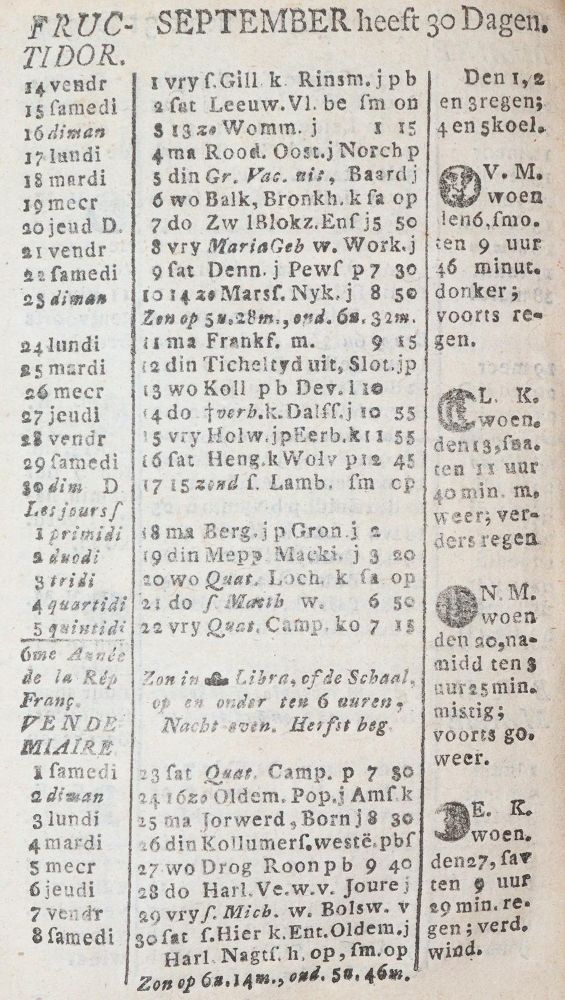 FRUC-
TIDOR.
SEPTEMBER heeft 30 Dagen.
14 vendr
15 ſamedi
16 diman
17 lundi
18 mardi
19 mecr
20 jeud D.
21 vendr
22 ſamedi
23 diman
24 lundi
25 mardi
26 mecr
27 jeudi
28 vendr
29 ſamedi
30 dim D
Les jours ſ
1 primidi
2 duodi
3 tridi
4 quartidi
5 quintidi
6me Année
de la Rép
Franç.
VENDE
MIAIRE.
1 ſamedi
2 diman
3 lundi
4 mardi
5 mecr
6 jeudi
7 vendr
8 ſamedi
1 vry ſ. Gill k Rinsm. j p b
2 ſat Leeuw. Vl. be ſm on
S 13 zo Womm. j 1 15
4 ma Rood. Oost. j Norch p
5 din Gr. Vac. uit, Baard j
6 wo Balk, Bronkh. k ſa op
7 do Zw lBlokz. Enſ j5 50
8 vry Maria Geb w. Work. j
9 ſat Denn. j Pewſ p 7 30
10 14 zo Marsſ. Nyk. j 8 50
Zon op 5 u. 28 m., ond. 6 u. 32 m.
11 ma Frankſ. m. 9 15
12 din Ticheltyd uit, Slot. jp
13 wo Koll p b Dev. l 10
14 do †verb. k. Dalſſ. j 10 55
15 vry Holw. jp Eerb. k 11 55
16 ſat Heng. k Wolv p 12 45
17 15 zond ſ. Lamb. ſm op
18 ma Berg. j p Gron. j 2
19 din Mepp Macki. j 3 20
20 wo Quat. Loch. k ſa op
21 do ſ. Matth w. 6 50
22 vry Quat. Camp. ko 7 15
Zon in ♎ Libra, of de Schaal,
op en onder ten 6 uuren,
Nacht-even. Herfst beg.
23 ſat Quat. Camp. p 7 30
24 16 zo Oldem. Pop. j Amſ. k
25 ma Jorwerd, Born j 8 30
26 din Kollumerſ. westë. pbſ
27 wo Drog Roon p b 9 40
28 do Harl. Ve. w. v. Joure j
29 vry ſ. Mich. w. Bolsw. v
30 ſat ſ. Hier k. Ent. Oldem. j
Harl. Nagtſ. h. op, ſm. op
Zon op 6 u. 14 m., ond. 5 u. 46 m.
Den 1, 2
en 3 regen;
4 en 5 koel.
V. M.
woen
den 6, ſmo.
ten 9 uur
46 minut.
donker;
voorts re-
gen.
L. K.
woen.
den 13, ſna.
ten 11 uur
40 min. m.
weer; ver-
ders regen
N. M.
woen
den 20, na-
midd ten 3
uur 25 min.
mistig;
voorts go.
weer.
E. K.
woen.
den 27, ſav
ten 9 uur
29 min. re-
gen; verd.
wind.